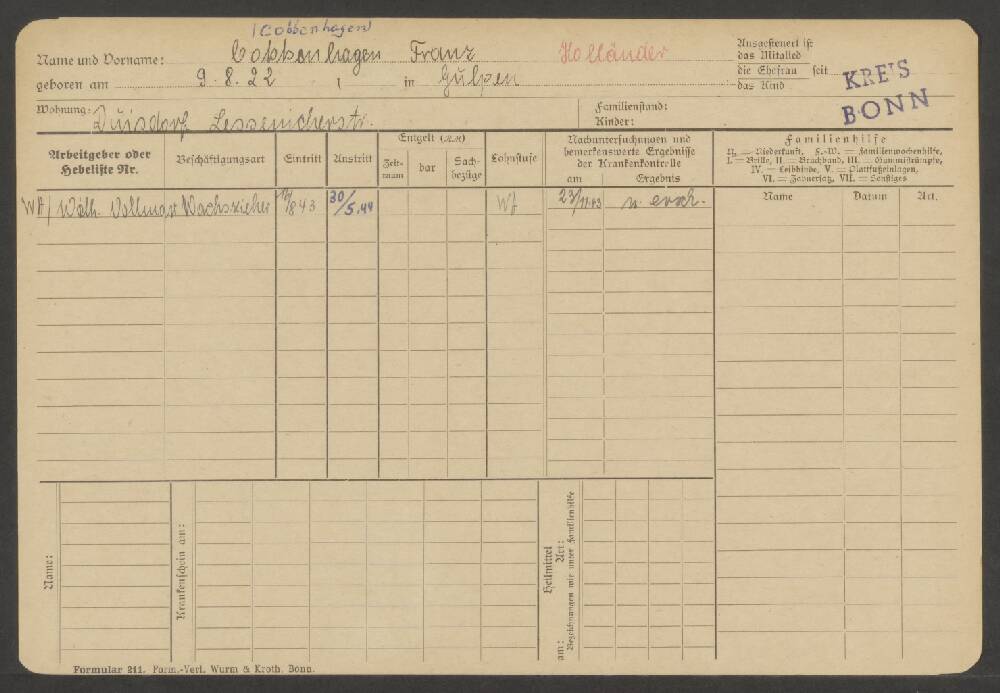 (Cobbenhagen)
Name und Vorname: Cobbenhagen Franz Holländer
Ausgesteuert ist
das Mitglied
die Ehefrau seit
das Kind
KREIS
BONN
geboren am 9.8.22 in Gülpen
Wohnung: Duisdorf Lessenicherstr.
Familienstand:
Kinder:
Arbeitgeber oder
Hebeliste Nr.
Beschäftigungsart
Eintritt
Austritt
Entgelt (RM)
Zeit-
raum
bar
Sach-
bezüge
Lohnstufe
Nachuntersuchungen und
bemerkenswerte Ergebnisse
der Krankenkontrolle
am Ergebnis
Familienhilfe
N. = Niederkunft, F.-W. = Familienwochenhilfe,
I. = Brille, II. = Bruchband, III. = Gummistrümpfe,
IV. = Leibbinde, V. = Plattfußeinlagen,
VI. = Zahnersatz, VII. = Sonstiges
Name Datum Art.
Wf/ Wilh. Vollmar Wachszieher 843 30/5.44 Wf 23/11.43 n. ersch.
Name:
Krankenschein am:
Heilmittel
am: Art:
Bezeichnungen wie unter Familienhilfe
Formular 211. Form.-Verl. Wurm & Kroth, Bonn.